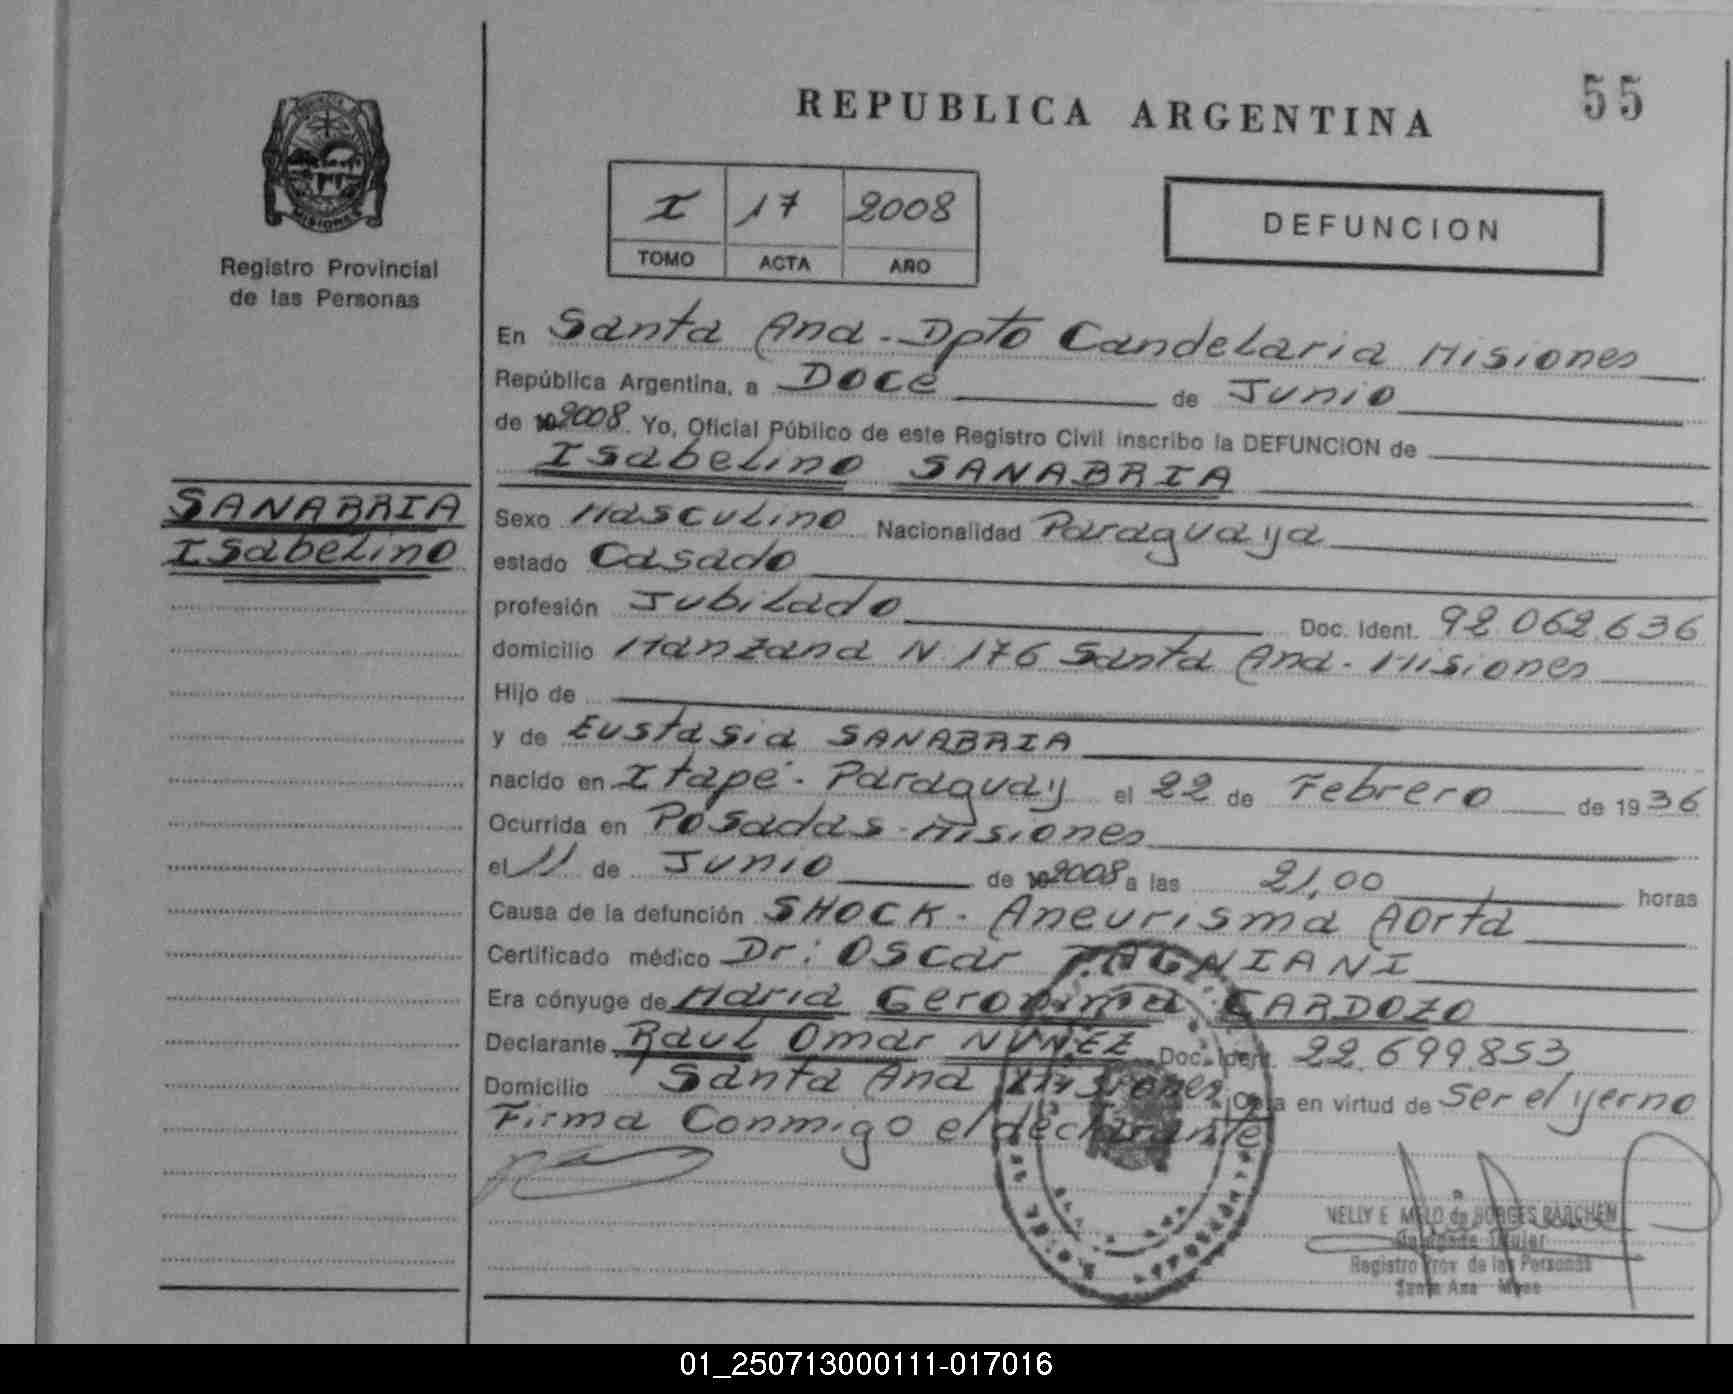 REPUBLICA ARGENTINA
55
MISIONES
Registro Provincial
de las Personas
I 17 2008
TOMO ACTA AÑO
DEFUNCION
En Santa Ana - Dpto Candelaria Misiones
República Argentina, a Doce de Junio
de 2008. Yo, Oficial Público de este Registro Civil inscribo la DEFUNCION de
Isabelino SANABRIA
SANABRIA
Isabelino
Sexo Masculino Nacionalidad Paraguaya
estado Casado
profesión Jubilado Doc. Ident. 92.062.636
domicilio Manzana N 176 Santa Ana - Misiones
Hijo de
y de Eustasia SANABRIA
nacido en Itapé - Paraguay el 22 de Febrero de 1936
Ocurrida en Posadas - Misiones
el 11 de Junio de 2008 a las 21,00 horas
Causa de la defunción SHOCK - Aneurisma Aorta
Certificado médico Dr: Oscar TAGNIANI
Era cónyuge de Maria Geronima CARDOZO
Declarante Raul Omar NUÑEZ Doc. Ident. 22.699.853
Domicilio Santa Ana Misiones Obra en virtud de Ser el yerno
Firma Conmigo el declarante
NELLY E. MELO de BORGES BARCHEN
Delegada Titular
Registro Prov. de las Personas
Santa Ana Mnes
01_250713000111-017016